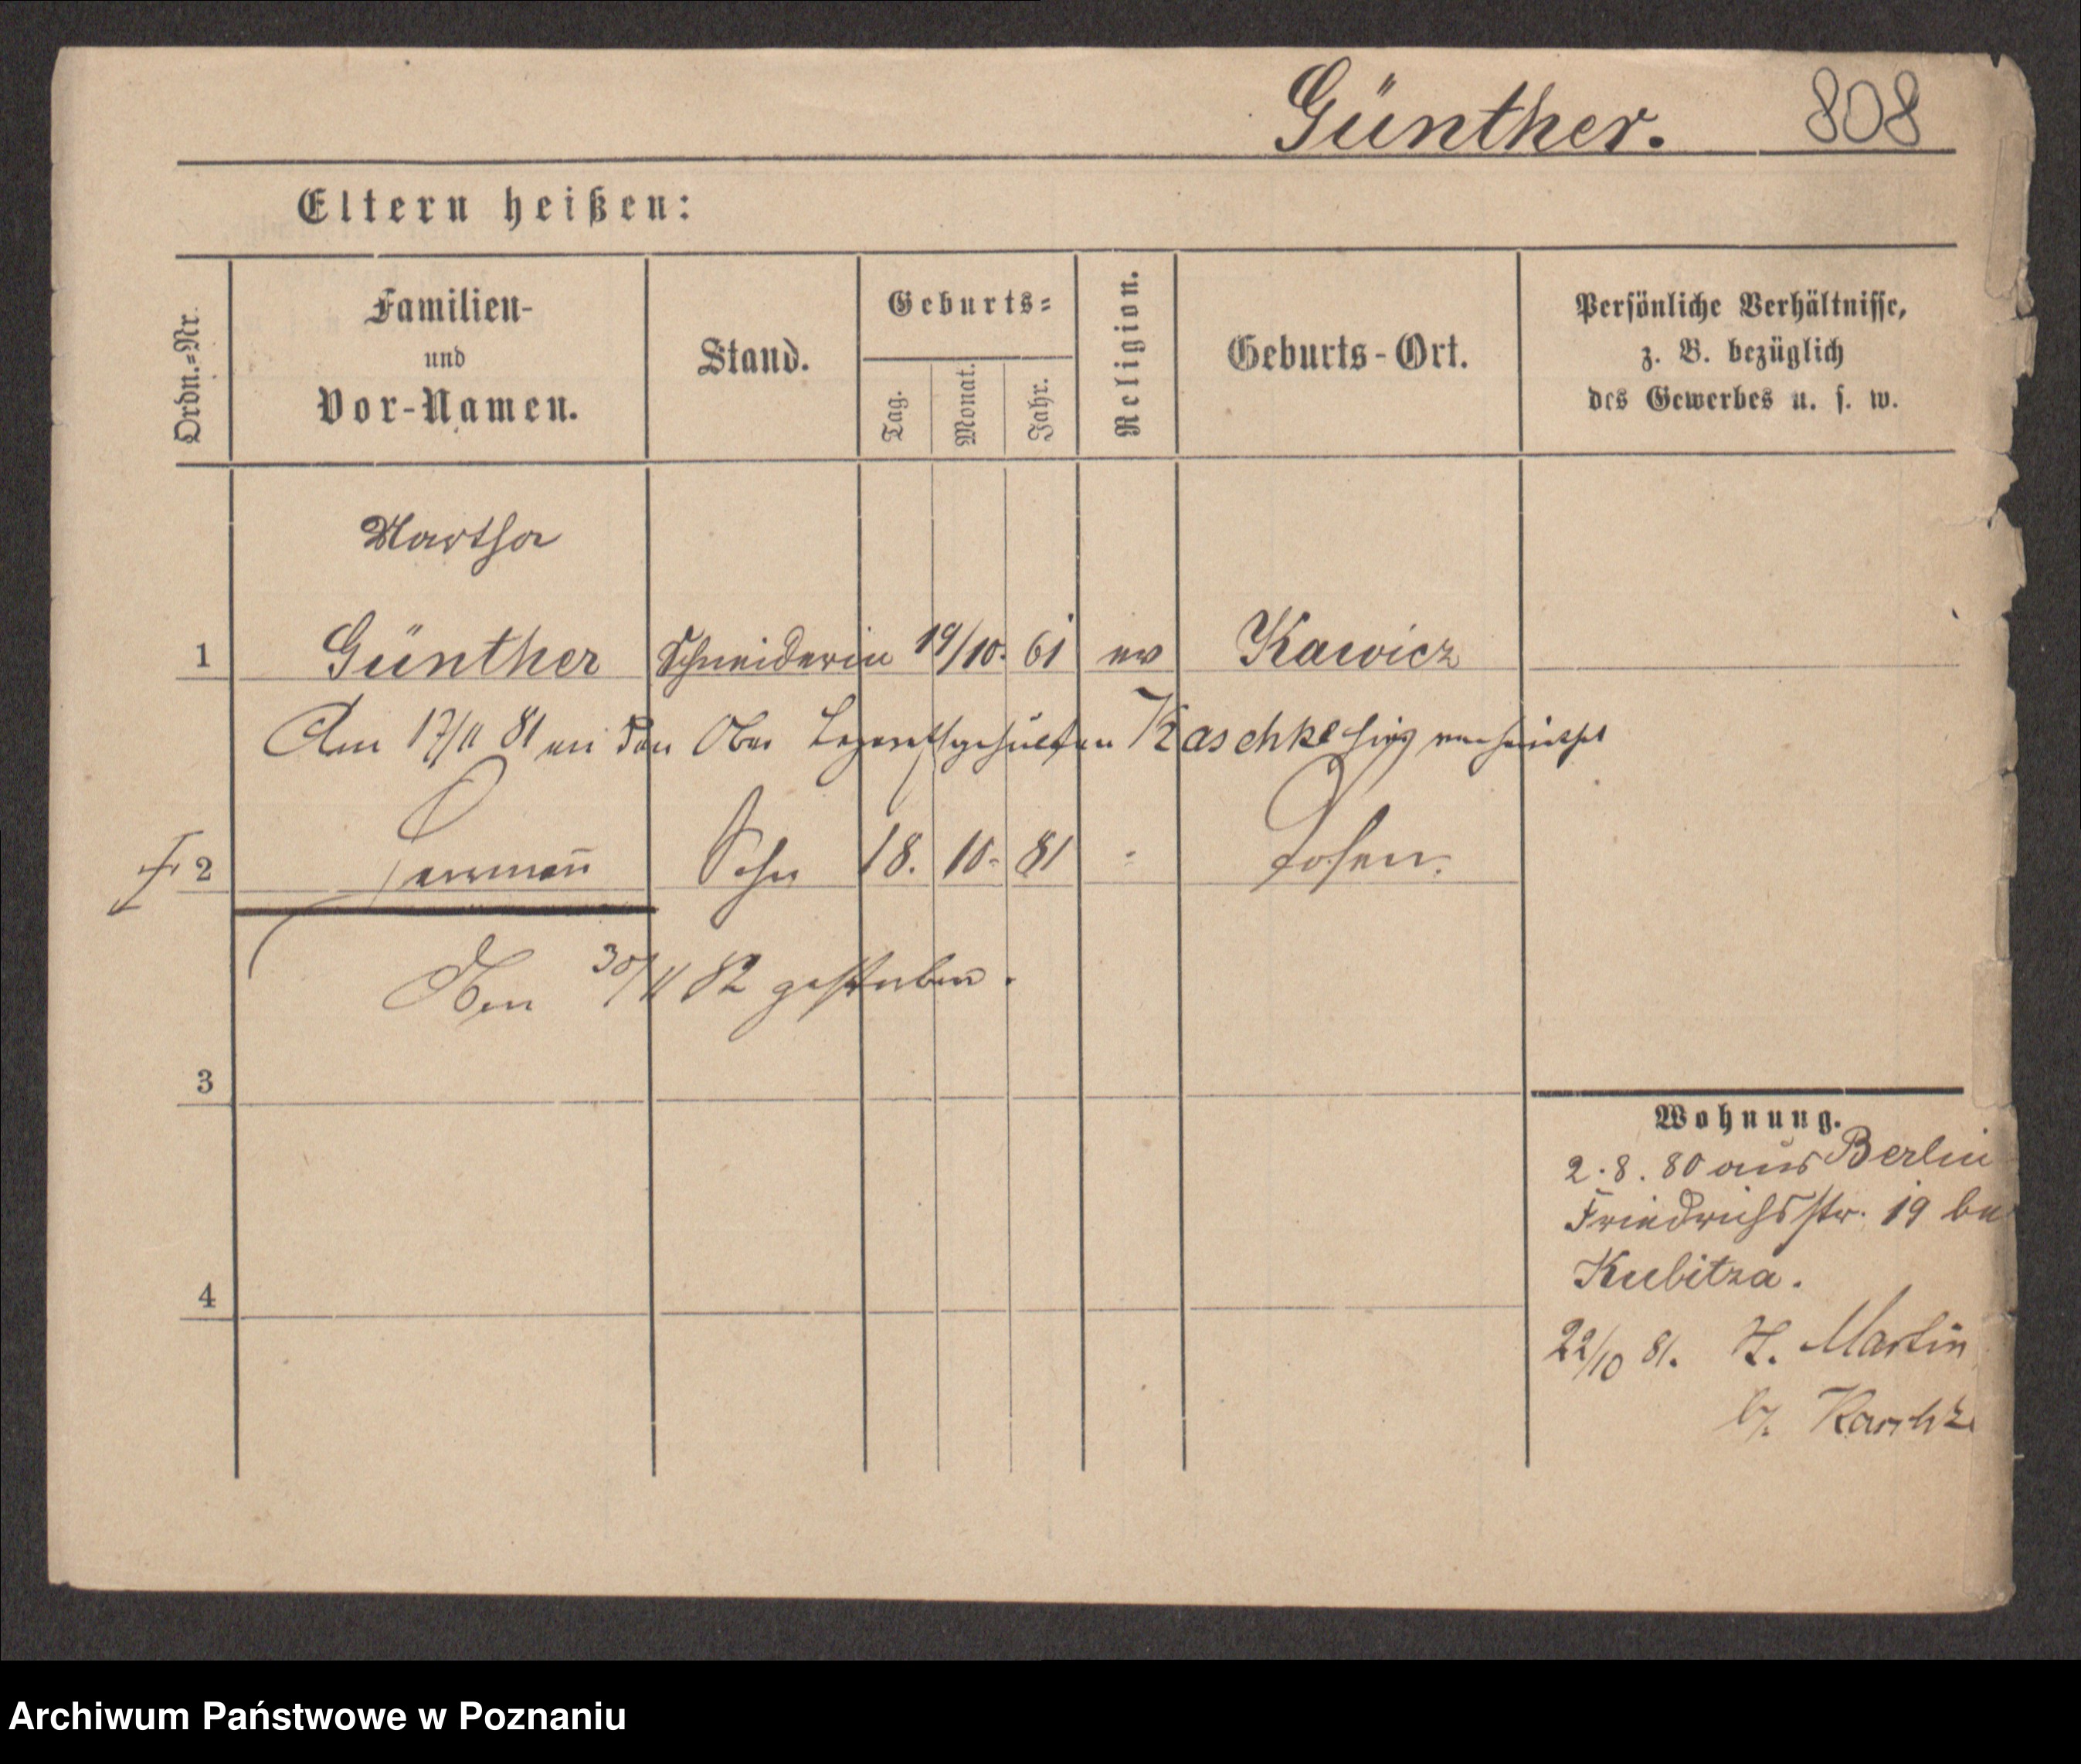 Günther. 808
Eltern heißen:
Ordn.=Nr.
Familien-
und
Vor-Namen.
Stand.
Geburts=
Tag.
Monat.
Jahr.
Religion.
Geburts-Ort.
Persönliche Verhältnisse,
z. B. bezüglich
des Gewerbes u. s. w.
Martha
1 Günther Schneiderin 19/10. 61 ev Kawicz
Am 17/11 81 an den Ober Lazarethgehülfen Kaschke hier verheirathet
2 Hermann Sohn 18. 10. 81 " Posen.
Den 30/11 82 gestorben.
3
4
Wohnung.
2.8.80 aus Berlin
Friedrichsstr. 19 bei
Kubitza.
22/10 81. St. Martin
b/. Kaschke
Archiwum Państwowe w Poznaniu